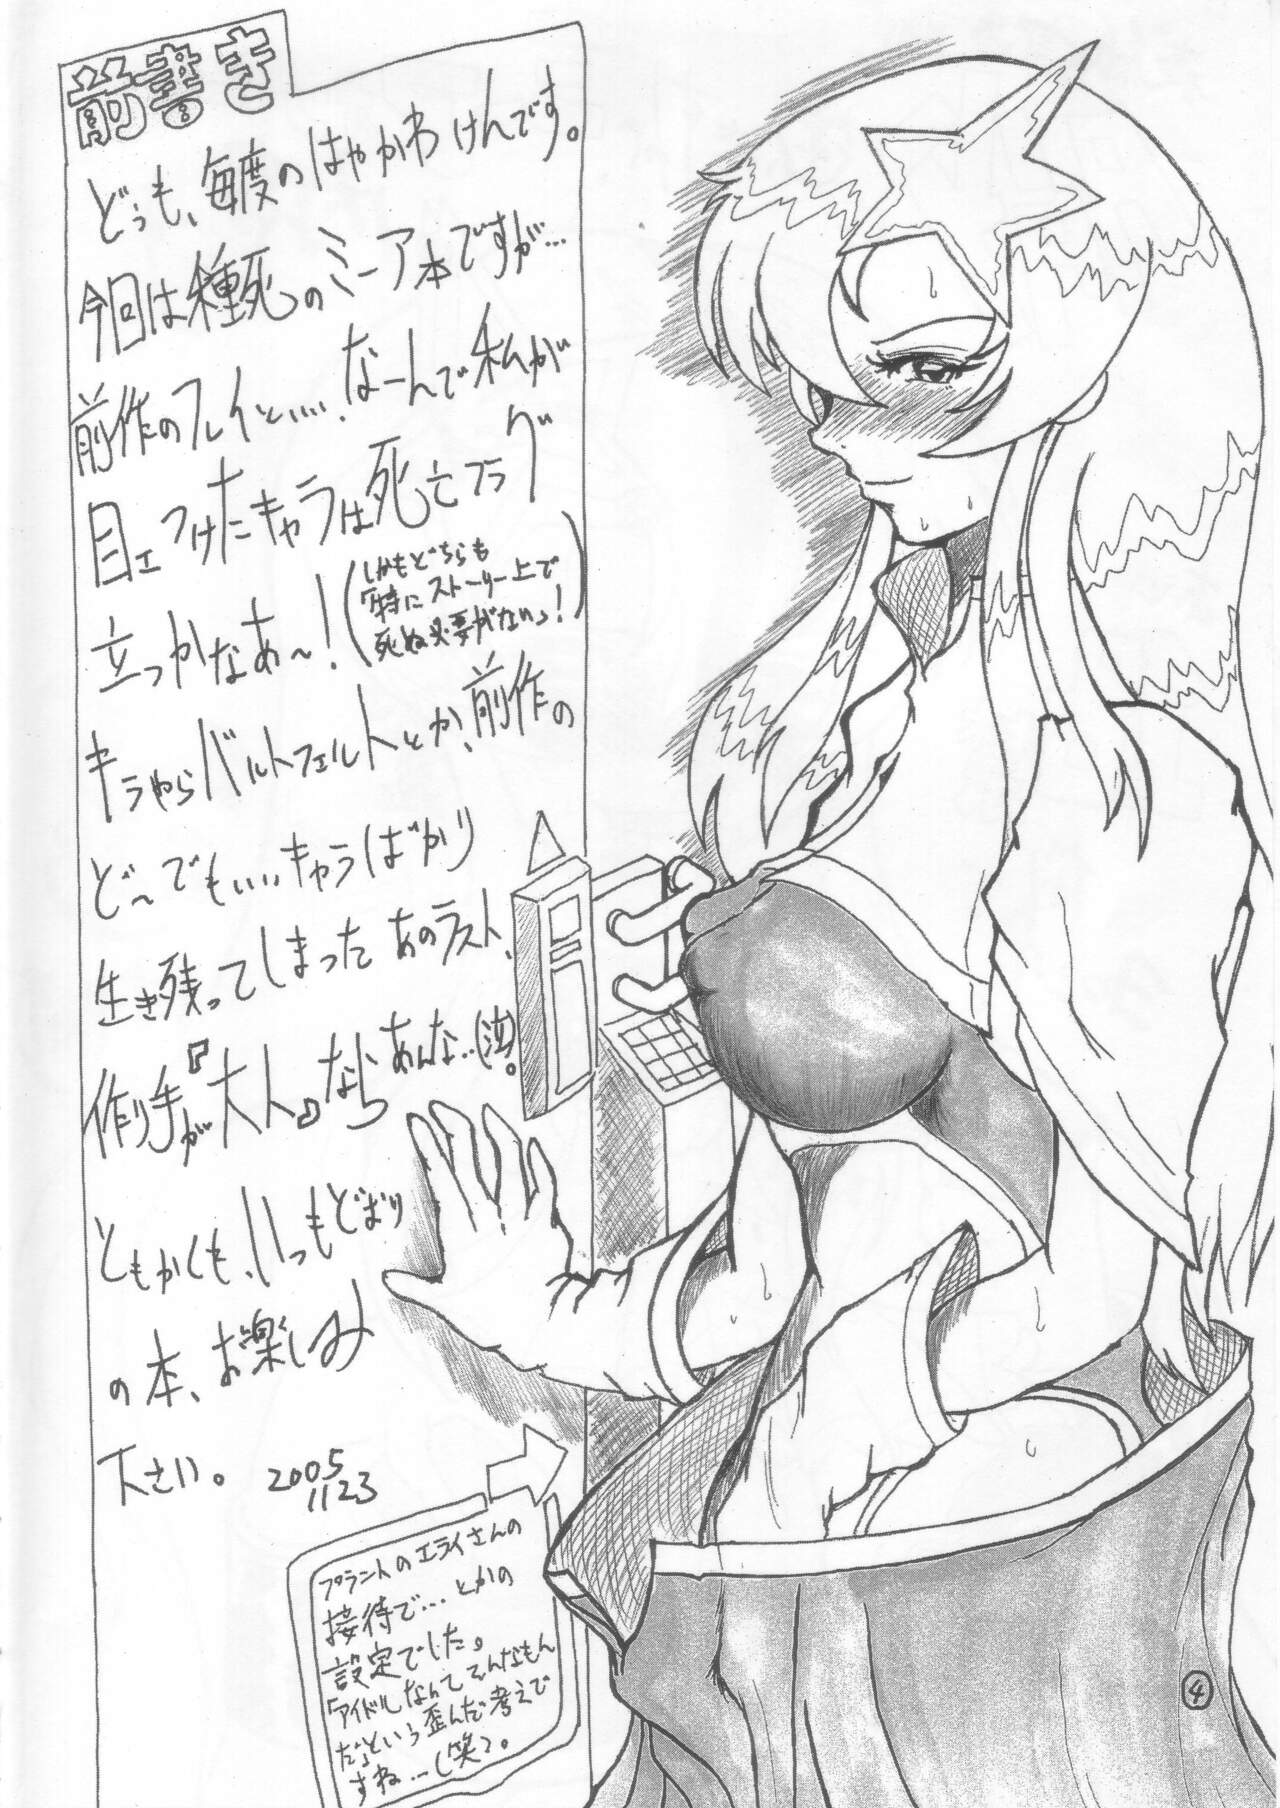 前書き
どうも、毎度のはやかわけんです。
今回は種死のミーア本ですが…
前作のフレイといい、なーんで私が
目エつけたキャラは死亡フラグ
立つかなあ～！(しかもどちらも
特にストーリー上で
死ぬ必要がないっ！)
キラやらバルトフェルトとか、前作の
ど～でもいいキャラばかり
生き残ってしまったあのラスト、
作り手が『大人』ならあんな…(泣)。
ともかくも、いつもどおり
の本、お楽しみ
下さい。
2005
1123
プラントのエライさんの
接待で…とかの
設定でした。
「アイドルなんてそんなもん
だ」という歪んだ考えで
すね…(笑)。
4